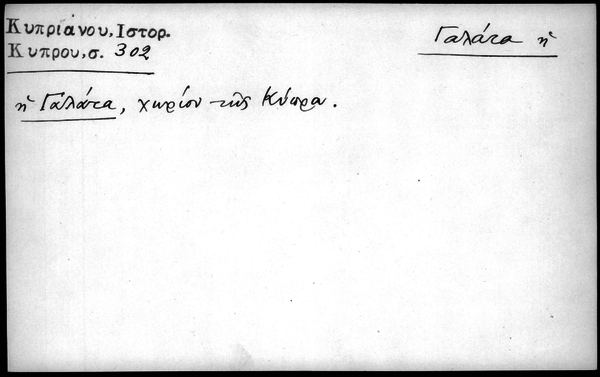 Κυπριανου, Ιστορ.
Κυπρου, σ. 302
Γαλάτα ἡ
ἡ Γαλάτα, χωρίον τῆς Κύπρου.